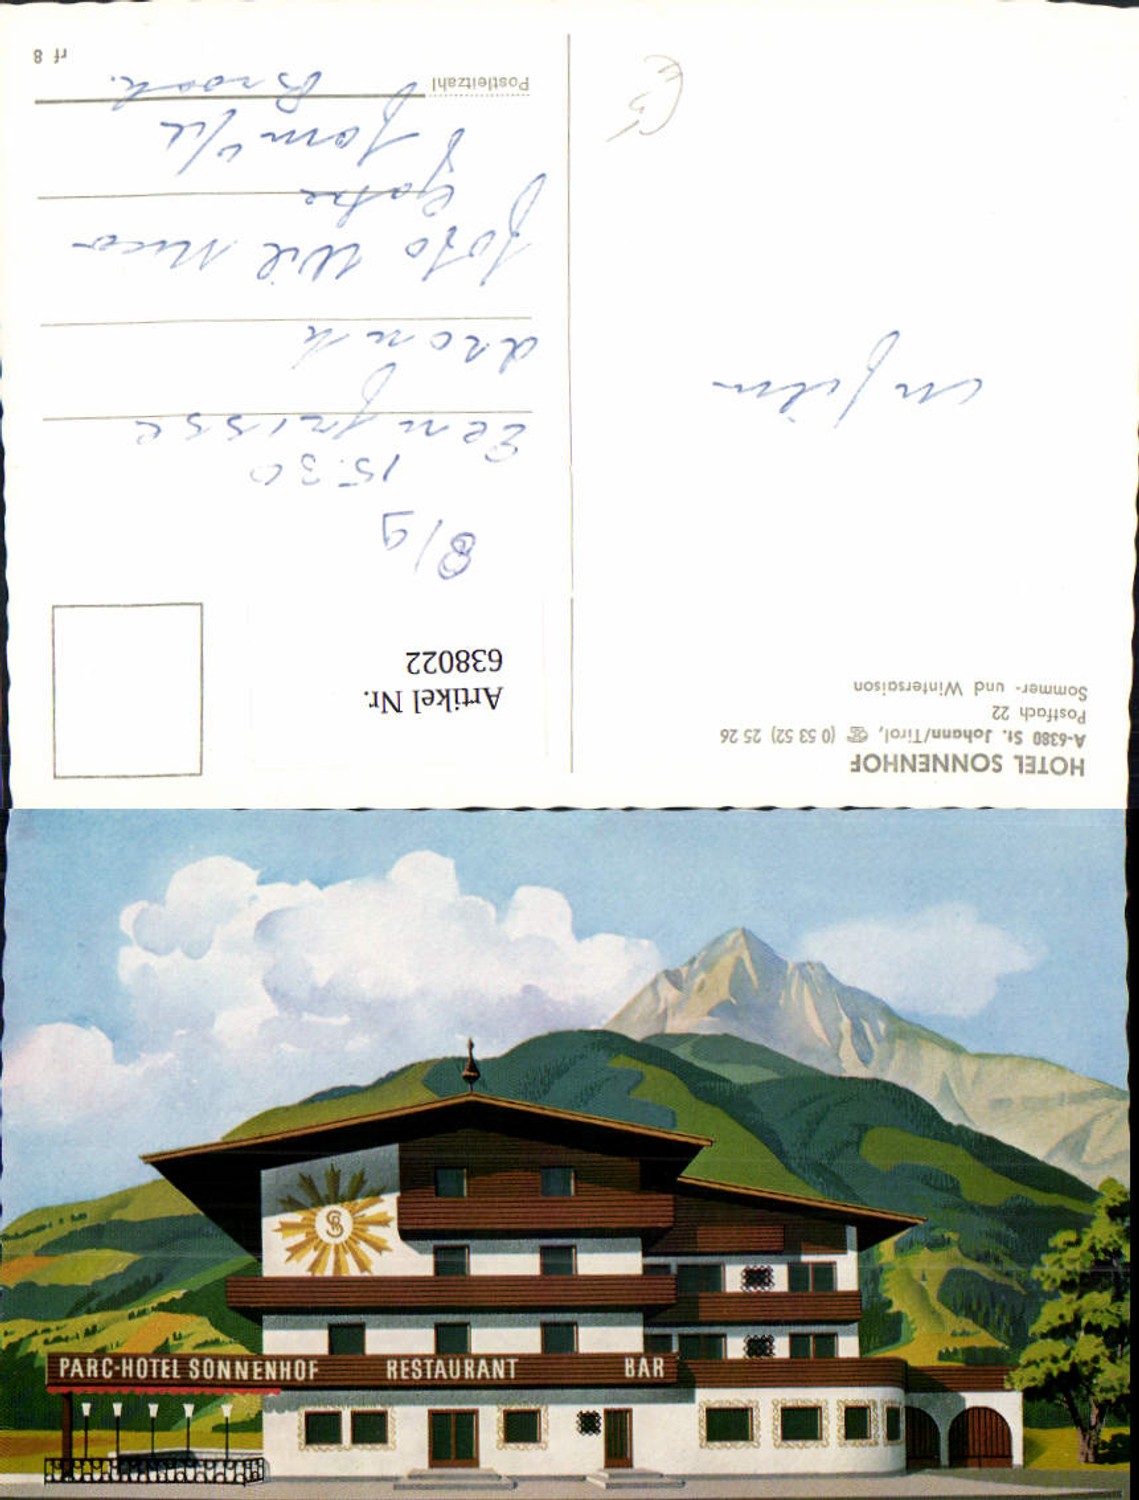 HOTEL SONNENHOF
A-6380 St. Johann/Tirol, ☏ (0 53 52) 25 26
Postfach 22
Sommer- und Wintersaison
Artikel Nr.
638022
8/9
15.30
Een frisse
dronk
foto Wil
familie
Postleitzahl
rf 8
PARC-HOTEL SONNENHOF RESTAURANT BAR